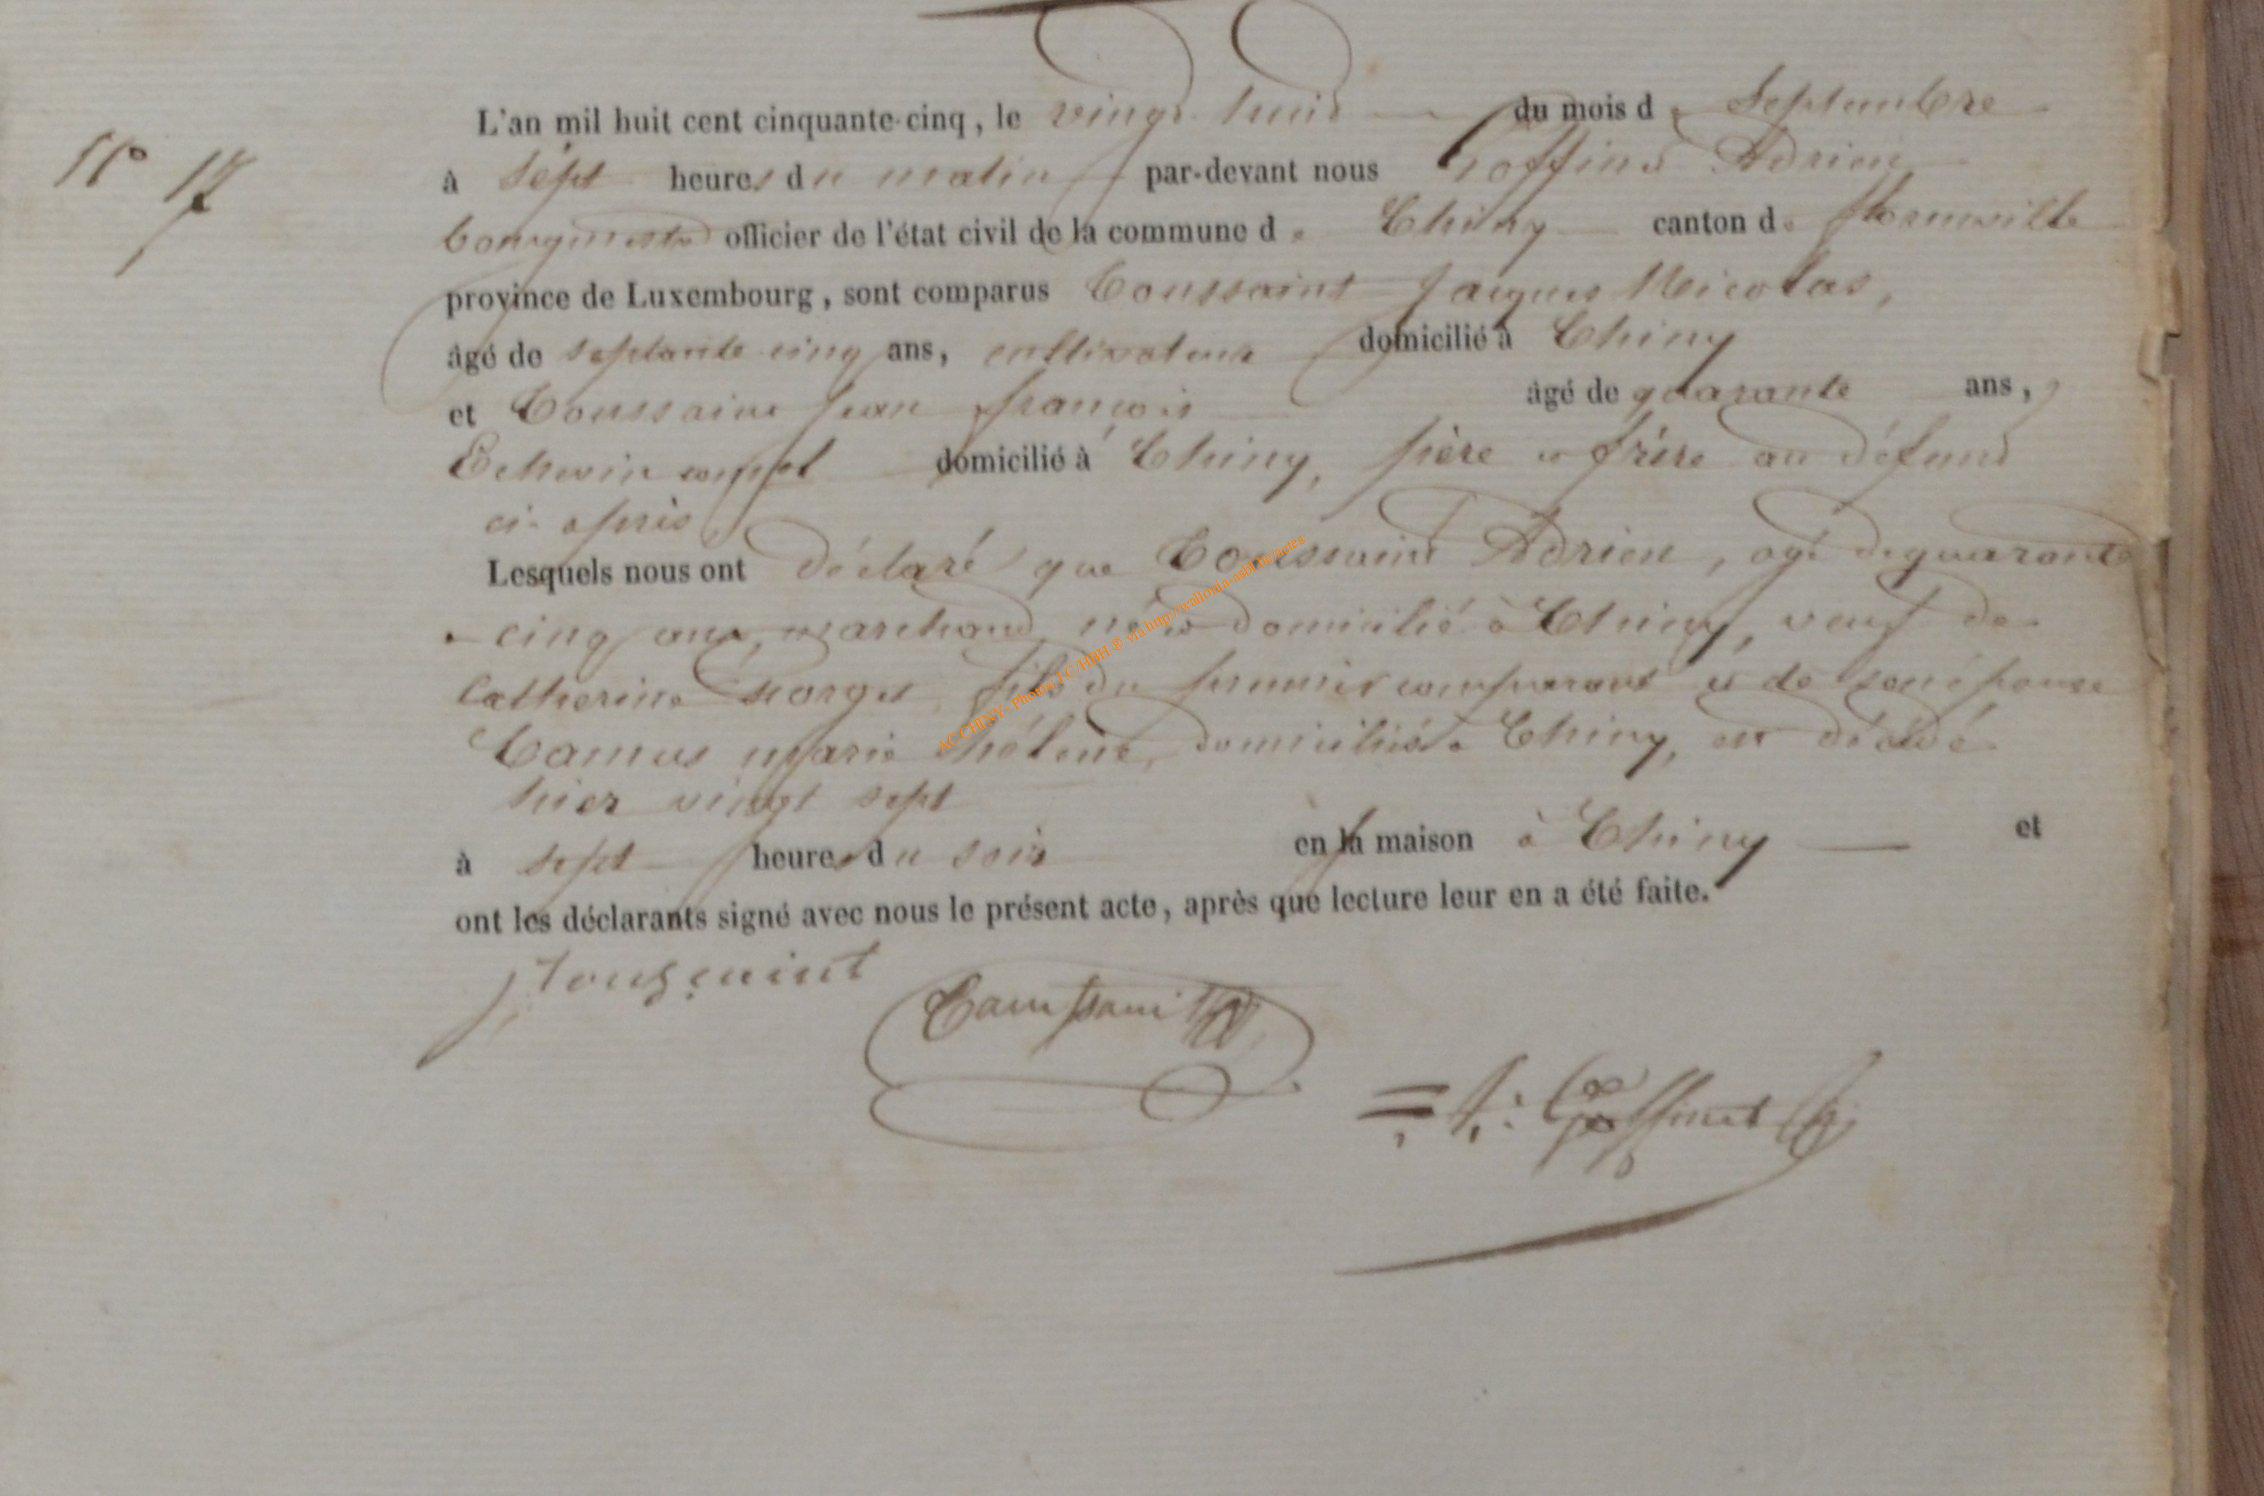 N° 17
L'an mil huit cent cinquante-cinq, le vingt huit du mois de Septembre
à sept heures du matin par-devant nous Goffinet Adrien
bourgmestre officier de l'état civil de la commune de Chiny canton de florenville
province de Luxembourg, sont comparus Toussaint Jacques Nicolas,
âgé de septante cinq ans, cultivateur domicilié à Chiny
et Toussaint Jean françois âgé de quarante ans,
Echevin domicilié à Chiny, père et frère au défunt
ci-après
Lesquels nous ont déclaré que Toussaint Adrien, agé de quarante
cinq ans, marchand, né et domicilié à Chiny, veuf de
Catherine fils du premier comparant et de son épouse
Camus marie hélène, domiciliés à Chiny, est décédé
hier vingt sept
à sept heures du soir en la maison à Chiny et
ont les déclarants signé avec nous le présent acte, après que lecture leur en a été faite.
Toussaint
Toussaint
A: Goffinet